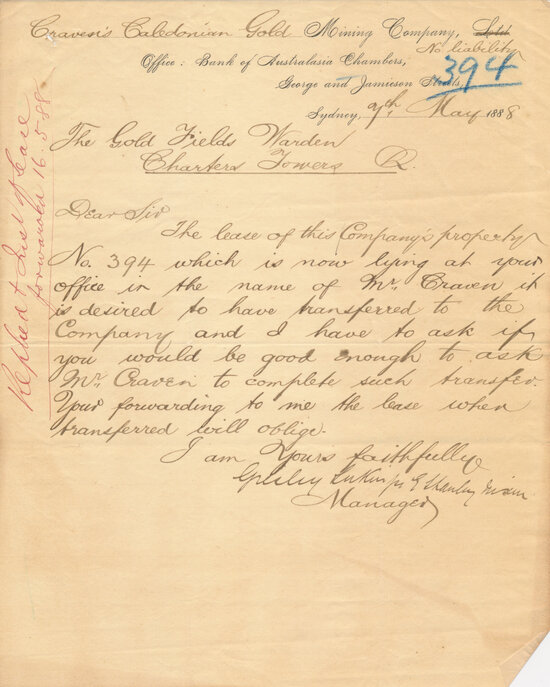 Craven's Caledonian Gold Mining Company, Ltd
No liability
Office: Bank of Australasia Chambers,
394
George and Jamieson Streets,
Sydney, 7th May 1888
The Gold Fields Warden
Charters Towers Q.
Dear Sir
The lease of this Company's property
No. 394 which is now lying at your
office in the name of Mr. Craven it
is desired to have transferred to the
Company and I have to ask if
you would be good enough to ask
Mr. Craven to complete such transfer.
Your forwarding to me the lease when
transferred will oblige.
I am Yours faithfully
Manager
Replied & Inst of Lease
forwarded 16.5.88